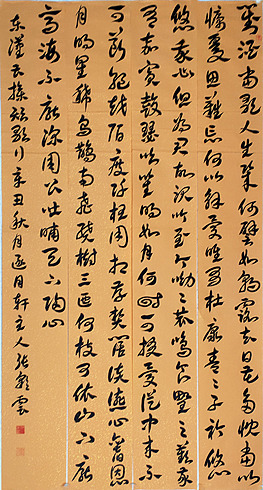 對酒當歌人生幾何譬如朝露去日苦多慨當以
慷憂思難忘何以解憂唯有杜康青々子衿悠
悠我心但為君故沉吟至今呦々鹿鳴食野之蘋我
有嘉賓鼓瑟吹笙明明如月何時可掇憂從中來不
可斷絕越陌度阡枉用相存契闊談讌心念舊恩
月明星稀烏鵲南飛繞樹三匝何枝可依山不厭
高海不厭深周公吐哺天下歸心
東漢曹操短歌行辛丑秋月逐月軒主人張雲